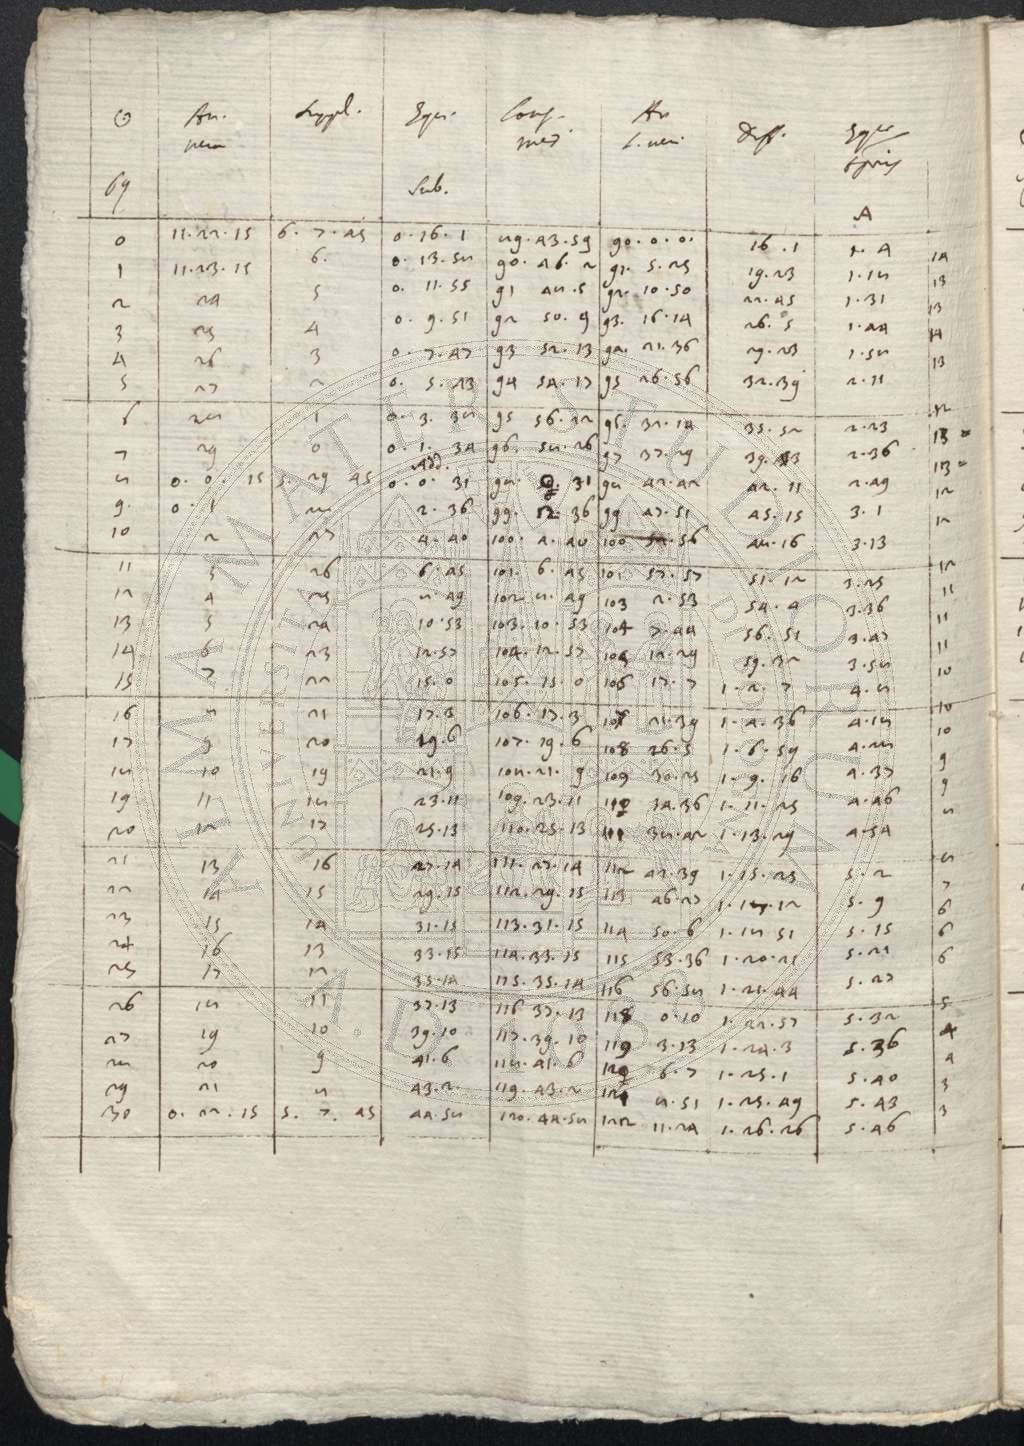 ☉ An. Suppl. Equ. Long. An Diff. Equ.
vera med.
69 Sub. A
0 11.22.15 6.7.45 0.16.1 89.43.59 90.0.0. 16.1 1.4 14
1 11.23.15 6. 0.13.58 90.46.2 91.5.25 19.23 1.18 13
2 24 5 0.11.55 91 48.5 92.10.50 22.45 1.31 13
3 25 4 0.9.51 92 50.9 93.16.14 26.5 1.44 14
4 26 3 0.7.47 93 52.13 94.21.36 29.23 1.58 13
5 27 2 0.5.43 94 54.17 95 26.56 32.39 2.11 12
6 28 1 0.3.38 95 56.22 96.32.14 35.52 2.23 13
7 29 0 0.1.34 96.58.26 97 37.29 2.36 13
Add.
8 0.0.15 5.29 45 0.0.31 98.0.31 98 42.42 42.11 2.49 12
9. 0.1 28 2.36 99.2.36 99 47.51 45.15 3.1 12
10 2 27 4.40 100.4.40 100 52.56 48.16 3.13 12
11 3 26 6.45 101.6.45 101 57.57 51.12 3.25 11
12 4 25 8.49 102 8.49 103 2.53 54.4 3.36 11
13 5 24 10.53 103.10.53 104 7.44 56.51 3.47 11
14 6 23 12.57 104.12.57 105 12.29 59.32 3.58 10
15 7 22 15.0 105.15.0 106 17.7 1.2.7 4.8 10
16 8 21 17.3 106.17.3 107 21.39 1.4.36 4.18 10
17 9 20 19.6 107.19.6 108 26.5 1.6.59 4.28 9
18 10 19 21.9 108.21.9 109 30.25 1.9.16 4.37 9
19 11 18 23.11 109.23.11 110 34.36 1.11.25 4.46 8
20 12 17 25.13 110.25.13 111 38.42 1.13.29 4.54 8
21 13 16 27.14 111.27.14 112 42.39 1.15.25 5.2 7
22 14 15 29.15 112.29.15 113 46.27 1.17.12 5.9 6
23 15 14 31.15 113.31.15 114 50.6 1.18 51 5.15 6
24 16 13 33.15 114.33.15 115 53.36 1.20.21 5.21 6
25 17 12 35.14 115.35.14 116 56.58 1.21.44 5.27 5
26 18 11 37.13 116 37.13 118 0.10 1.22.57 5.32 4
27 19 10 39.10 117.39.10 119 3.13 1.24.3 5.36 4
28 20 9 41.6 118.41.6 120 6.7 1.25.1 5.40 3
29 21 8 43.2 119.43.2 121 8.51 1.25.49 5.43 3
30 0.22.15 5.7.45 44.58 120.44.58 122 11.24 1.26.26 5.46